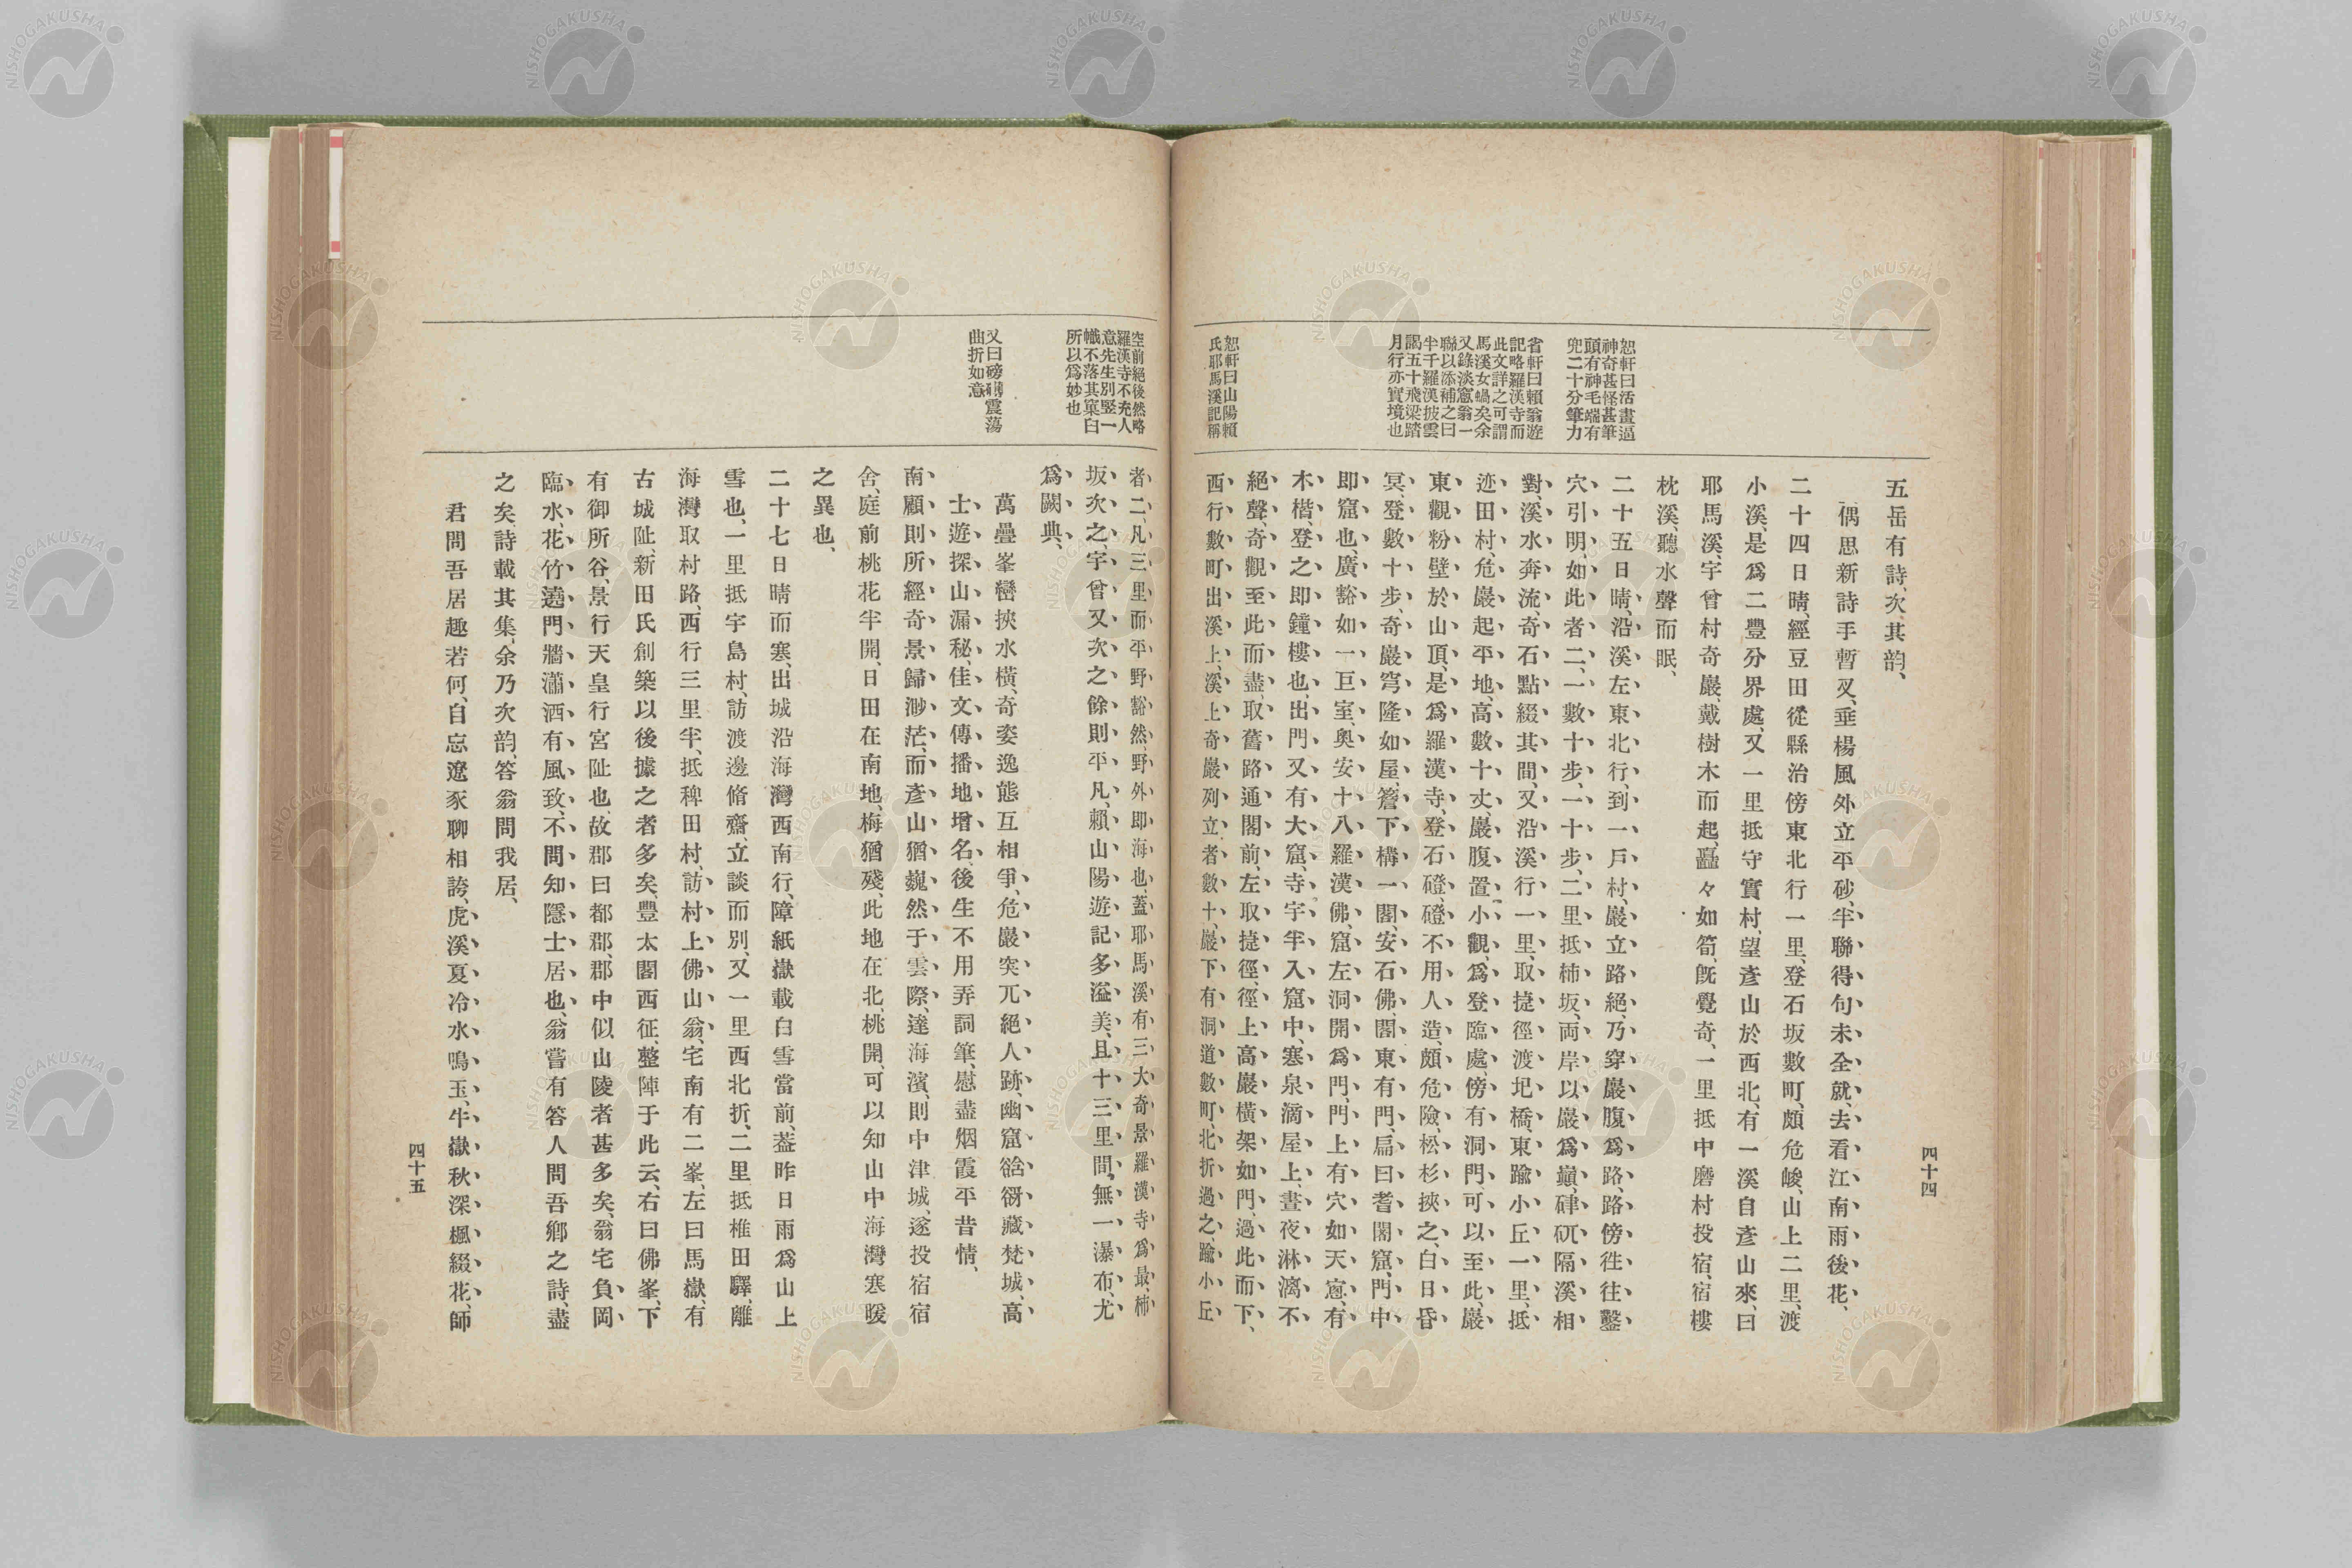 恕軒曰活畫逼
神奇甚怪甚筆
頭有神毛端有
兜二十分筆力
省軒曰頼翁遊
記略羅漢寺而
此文詳之可謂
馬溪女蝸矣余
又錄淡窻翁一
聯以添補之曰
半千羅漢披雲
謁五十飛梁踏
月行亦實境也
恕軒曰山陽頼
氏耶馬溪記稱
五岳有詩、次其韵、
偶思新詩手暫叉、垂楊風外立平砂、半聯得句未全就、去看江南雨後花、
二十四日晴、經豆田從縣治傍東北行一里、登石坂數町、頗危峻、山上二里、渡
小溪、是爲二豐分界處、又一里抵守實村、望彥山於西北、有一溪自彥山來、曰
耶馬溪、宇曾村奇巖、戴樹木而起、矗々如筍、旣覺奇、一里抵中磨村投宿、宿樓
枕溪、聽水聲而眠、
二十五日晴、沿溪左東北行、到一戶村、巖立路絕、乃穿巖腹爲路、路傍往往鑿
穴引明、如此者二、一數十步、一十步、二里抵柿坂、兩岸以巖爲巓、硉矹隔溪相
對、溪水奔流、奇石點綴其間、又沿溪行一里、取捷徑渡圯橋、東踰小丘一里、抵
迹田村、危巖起平地、高數十丈、巖腹置小觀、爲登臨處、傍有洞門、可以至此、巖
東觀粉壁於山頂、是爲羅漢寺、登石磴、磴不用人造、頗危險、松杉挾之、白日昏
冥、登數十步、奇巖穹隆如屋、簷下構一閣、安石佛、閣東有門、扁曰耆闍窟、門中
即窟也、廣豁如一巨室、奧安十八羅漢佛、窟左洞開爲門、門上有穴如天窻、有
木楷、登之即鐘樓也、出門又有大窟、寺宇半入窟中、寒泉滴屋上、晝夜淋漓不
絕聲、奇觀至此而盡、取舊路通閣前、左取捷徑、徑上高巖橫架如門、過此而下、
西行數町出溪上、溪上奇巖列立者數十、巖下有洞道數町、北折過之、踰小丘
四十四
空前絕後然略
羅漢寺不充人
意先生別竪一
幟不落其窠臼
所以爲妙也
又曰磅礴震蕩
曲折如意
者二、凡三里而平野豁然、野外即海也、蓋耶馬溪有三大奇景、羅漢寺爲最、柿
坂次之、宇曾又次之、餘則平凡、頼山陽遊記多溢美、且十三里間、無一瀑布、尤
爲闕典、
萬疊峯巒挾水橫、奇姿逸態互相爭、危巖突兀絕人跡、幽窟谽谺藏梵城、高
士遊探山漏秘、佳文傳播地增名、後生不用弄詞筆、慰盡烟霞平昔情、
南顧則所經奇景歸渺茫、而彥山猶巍然于雲際、達海濱、則中津城、遂投宿宿
舍、庭前桃花半開、日田在南地、梅猶殘、此地在北、桃開、可以知山中海灣寒暖
之異也、
二十七日晴而寒、出城沿海灣西南行、障紙嶽載白雪當前、葢昨日雨爲山上
雪也、一里抵宇島村、訪渡邊脩齋、立談而別、又一里西北折、二里抵椎田驛、離
海灣取村路、西行三里半、抵稗田村、訪村上佛山翁、宅南有二峯、左曰馬嶽、有
古城阯、新田氏創築以後據之者多矣、豐太閤西征、整陣于此云、右曰佛峯、下
有御所谷、景行天皇行宮阯也、故郡曰都郡、郡中似山陵者甚多矣、翁宅負岡
臨水、花竹遶門牆、瀟洒有風致、不問知隱士居也、翁嘗有答人問吾鄕之詩、盡
之矣、詩載其集、余乃次韵、答翁問我居、
君問吾居趣若何、自忘遼豕聊相誇、虎溪夏冷水鳴玉、牛嶽秋深楓綴花、師
四十五